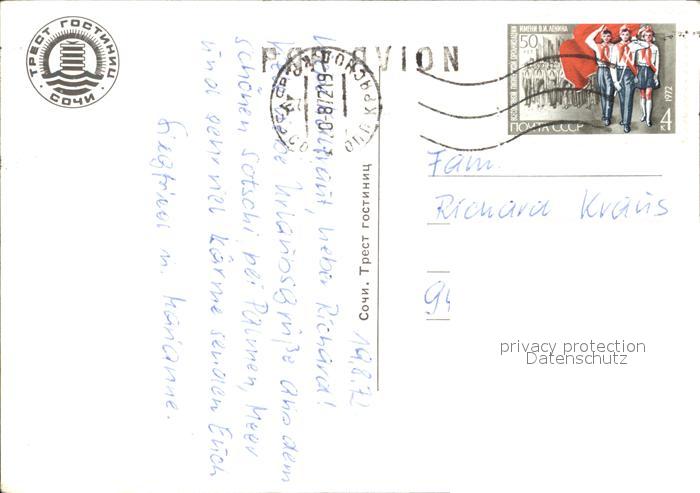 ТРЕСТ ГОСТИНИЦ
СОЧИ
PAR AVION
50 ЛЕТ
ИМЕНИ В.И. ЛЕНИНА
ВСЕСОЮЗНОЙ ПИОНЕРСКОЙ ОРГАНИЗАЦИИ
1972
ПОЧТА СССР
4 к
Fam.
Richard Kraus
94
privacy protection
Datenschutz
Сочи. Трест гостиниц
19.8.72
lieber Richard!
Urlaubsgrüße aus dem
schönen Sotschi bei Palmen, Meer
und sehr viel Wärme senden Euch
Siegfried u. Marianne.